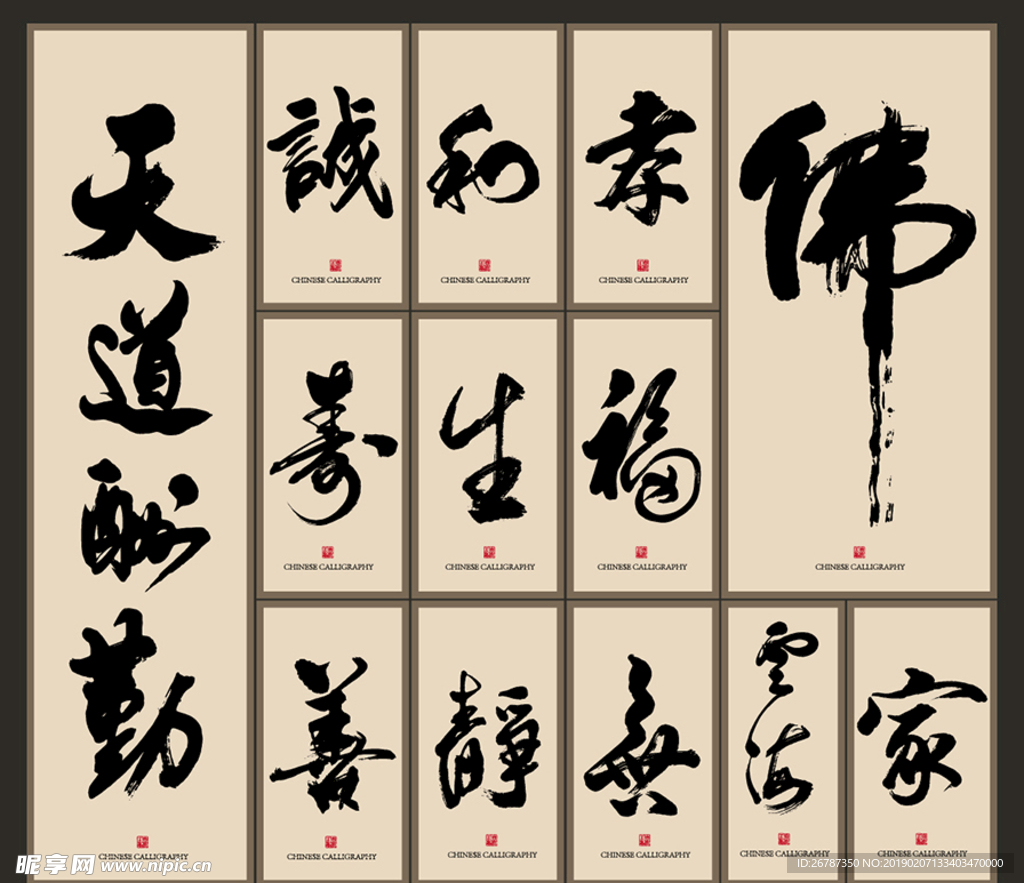 天道酬勤
CHINESE CALLIGRAPHY
誠
CHINESE CALLIGRAPHY
和
CHINESE CALLIGRAPHY
孝
CHINESE CALLIGRAPHY
佛
CHINESE CALLIGRAPHY
壽
CHINESE CALLIGRAPHY
生
CHINESE CALLIGRAPHY
福
CHINESE CALLIGRAPHY
善
CHINESE CALLIGRAPHY
靜
CHINESE CALLIGRAPHY
無
CHINESE CALLIGRAPHY
雲海
CHINESE CALLIGRAPHY
家
CHINESE CALLIGRAPHY
昵享网 www.nipic.cn
ID:26787350 NO:20190207133403470000